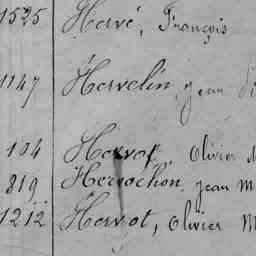 1525 Hervé, François
1147 Hervelin, jean
104 Hervot, Olivier M
819 Hervochon, jean M
1212 Hervot, Olivier M